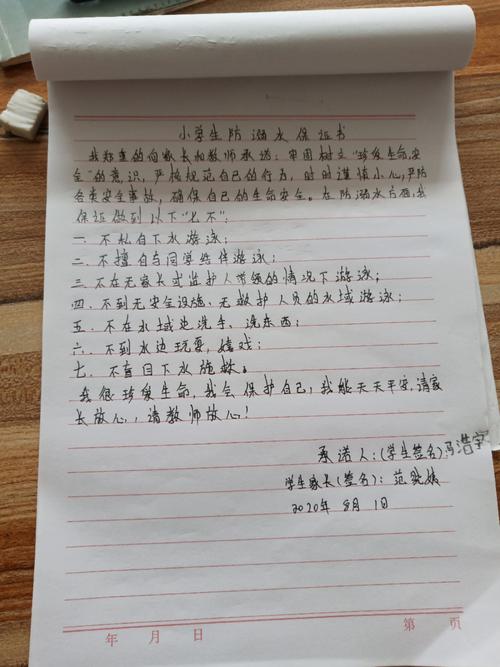 小学生防溺水保证书
我郑重的向家长和教师承诺：牢固树立"珍爱生命,安
全"的意识，严格规范自己的行为，时时谨慎小心,严防
各类安全事故，确保自己的生命安全。在防溺水方面,我
保证做到以下"七不"：
一．不私自下水游泳；
二．不擅自与同学结伴游泳；
三．不在无家长或监护人带领的情况下游泳；
四．不到无安全设施、无救护人员的水域游泳；
五．不在水域边洗手、洗东西；
六．不到水边玩耍，嬉戏；
七．不盲目下水施救。
我很珍爱生命，我会保护自己，我能天天平安,请家
长放心，请教师放心！
承诺人：(学生签名)冯浩宇
学生家长(签名)：范
2020年 8月 1日
年 月 日 第 页